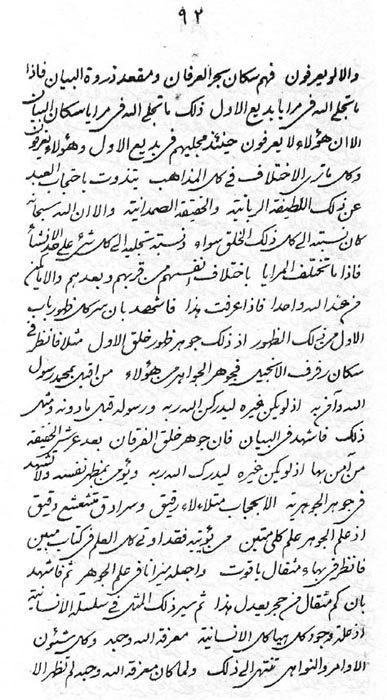 ٩٢
والا لو يعرفون فهم سكان بحر العرفان ومقعد ذروة البيان فاذا
ما تجلى الله فى مرايا بديع الاول ذلك ما تجلى الله فى مرايا سكان البيان
الا ان هؤلاء لا يعرفون حينئذ مجليهم فى بديع الاول وهؤلاء يعرفون
وكل ما ترى الاختلاف فى كل المذاهب يتذوت باحتجاب العبد
عن ذلك اللطيفة الربانية والحقيقة الصمدانية والا ان الله سبحانه
كان نسبته الى كل ذلك الخلق سواء ونسبته تجليه الى كل شئ على حد الانشاء
فاذا ما تختلف المرايا باختلاف انفسهم من قربهم وبعدهم والا ما يكن
من عند الله واحدا فاذا عرفت هذا فاشهد بان سر كل ظهور باب
الاول من ذلك الظهور اذ ذلك جوهر ظهور خلق الاول مثلا فانظر فى
سكان رفرف الانجيل فجوهر الجواهر من هؤلاء من اقبل بمحمد رسول
الله وآمن به اذ لو يكن غيره ليدركن الله ربه ورسوله قبل ما دونه ومثل
ذلك فاشهد فى البيان فان جوهر خلق الفرقان بعد عرش الحقيقة
من آمن بها اذ لو يكن غيره ليدرك الله ربه ويؤمن بمظهر نفسه ولا تشهد
فى جوهر الجوهرية الا بحجاب متلألاء رقيق وسرادق متشعشع دقيق
اذ علم الجوهر علم كلى متين من يؤتيه فقد اوتى كل العلم فى كتاب مبين
فانظر فى بهاء مثقال ياقوت واجعله ميزانا فى علم الجوهر ثم فاشهد
بان كم مثقال من حجر يعدل هذا ثم سير ذلك المثل فى سلسلة الانسانية
اذ علة وجود كل هياكل الانسانية معرفة الله وحده وكل شئون
الاوامر والنواهى تنتهى الى ذلك ولما كان معرفة الله وحده لم تظهر الا